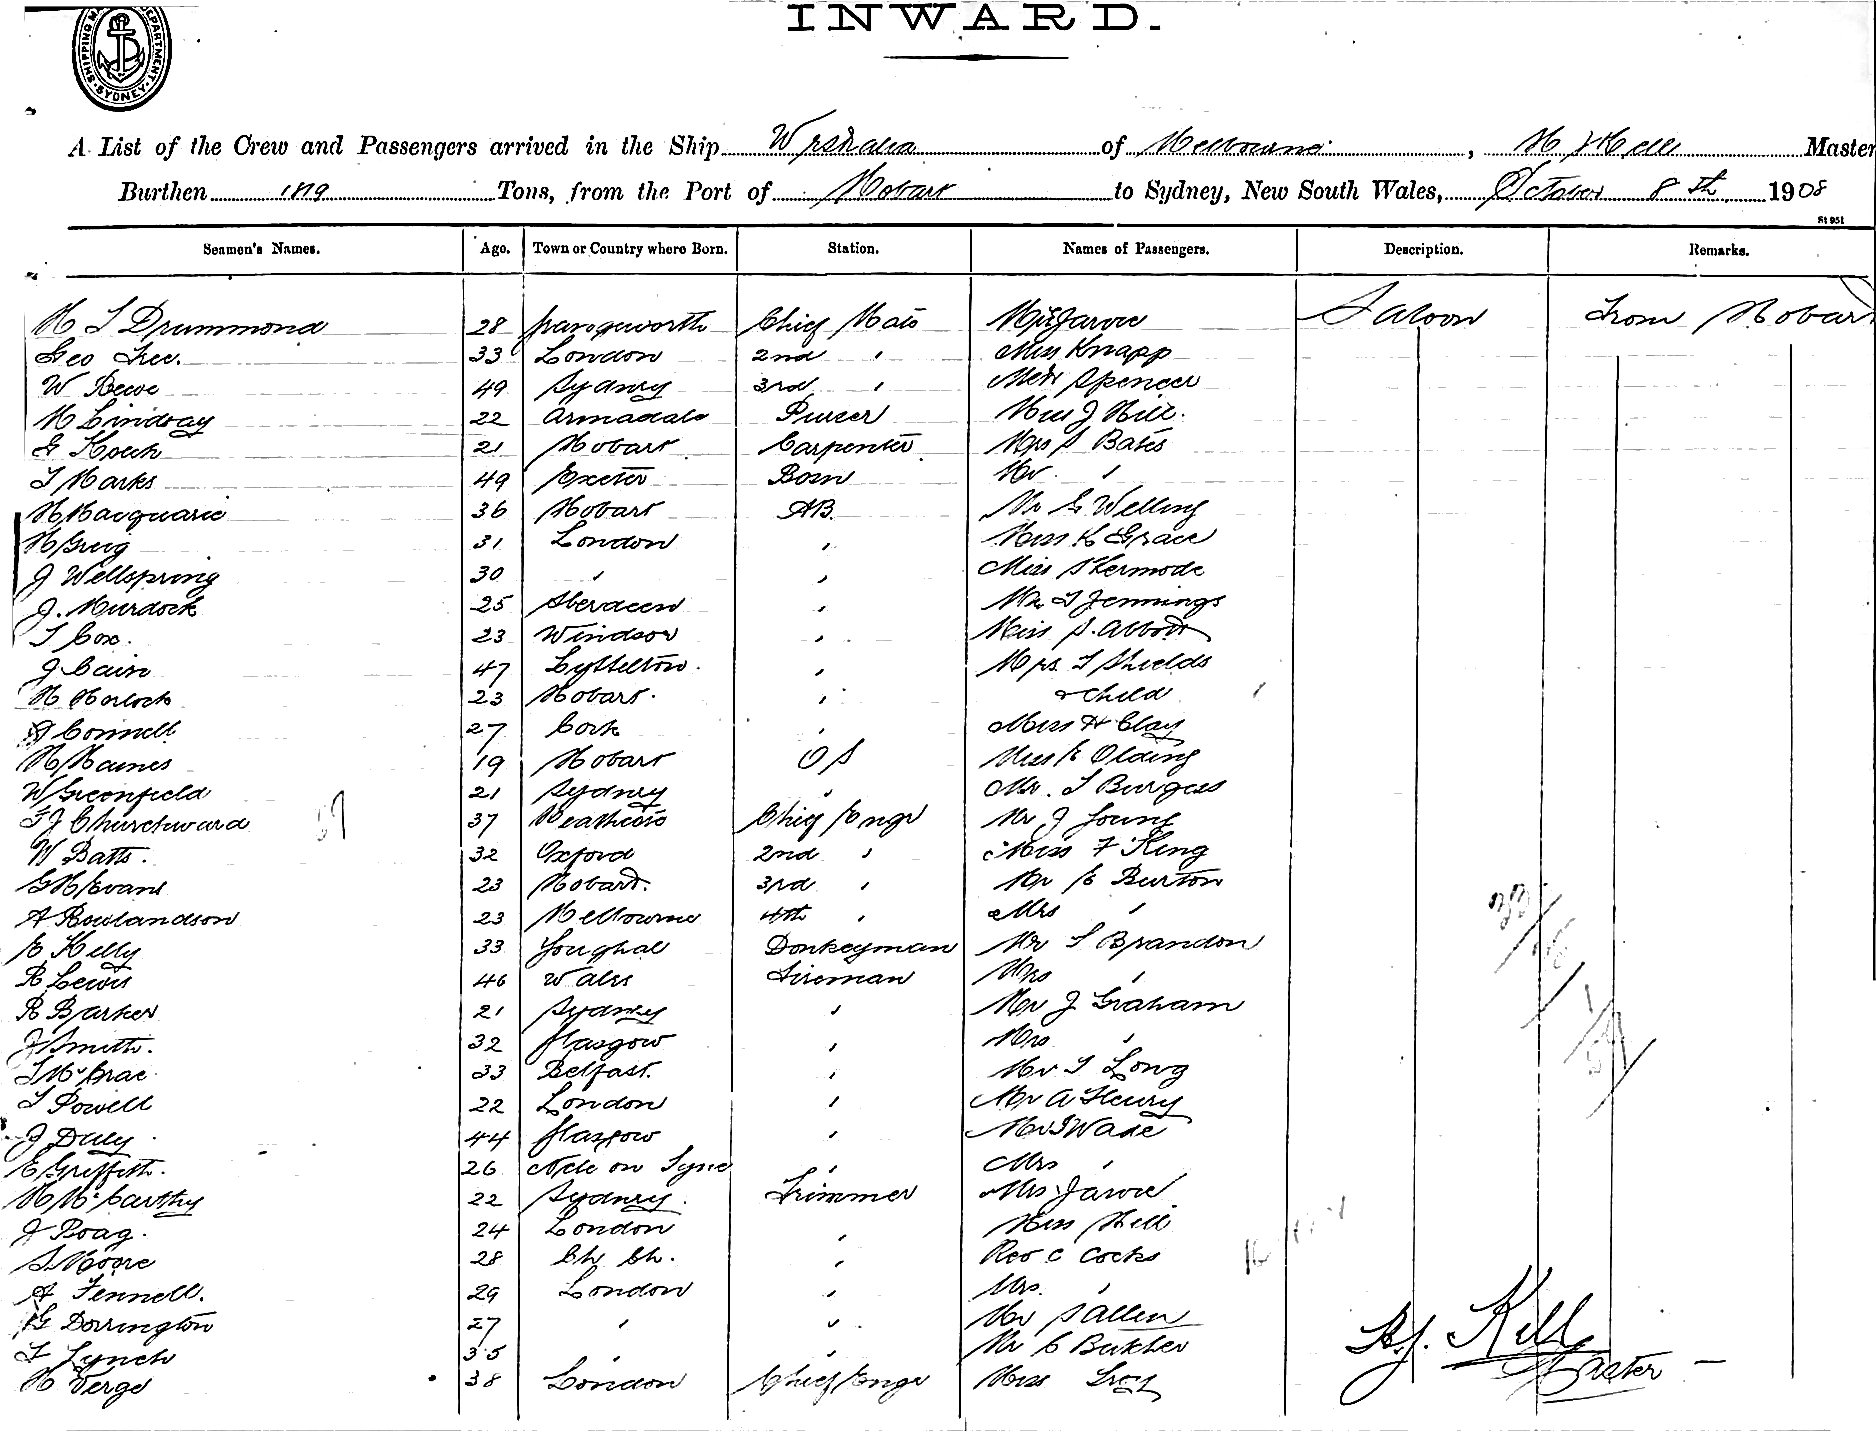 INWARD.
SHIPPING MA DEPARTMENT SYDNEY
A List of the Crew and Passengers arrived in the Ship Westralia of Melbourne, H J Kell Master
Burthen 1819 Tons, from the Port of Hobart to Sydney, New South Wales, October 8th 1908
St 951
Seamen's Names. Age. Town or Country where Born. Station. Names of Passengers. Description. Remarks.
Drummond 28 Chief Mate Jarvie Saloon From Hobart
Geo 33 London 2nd " Miss Knapp
W 49 Sydney 3rd " Spencer
H Lindsay 22 Armadale Purser J Hill.
G 21 Hobart Carpenter Mrs S Bates
T Marks 49 Exeter Bosn Mr "
H Macquarie 36 Hobart AB. Mr G Welling
H Greig 31 London " Miss K Grace
J Wellspring 30 " " Miss S Kermode
J. Murdock 25 Aberdeen " T Jennings
T Cox. 23 Windsor " Miss S. Abbott
J Cain 47 Lyttelton. " Mrs. T Shields
H Horlock 23 Hobart. " & Child
J Connell 27 Cork " Miss H Clay
H Haines 19 Hobart OS Miss E Olding
W Greenfield 21 Sydney " Mr. T Burgess
J Churchward 37 Chief Engr Mr J Young
W Batts. 32 Oxford 2nd " Miss F King
G H Evans 23 Hobart. 3rd " Mr E Burton
A Rowlandson 23 Melbourne 4th " Mrs "
E Kelly 33 Youghal Donkeyman Mr T Brandon
R Lewis 46 Wales Fireman Mrs "
R Barker 21 Sydney " Mr J Graham
J Smith. 32 Glasgow " Mrs "
33 Belfast. " Mr T Long
T Powell 22 London " Mr A Fleury
J Daly 44 Glasgow " Mr T Wade
E Griffith. 26 Ncle on Tyne " Mrs "
H McCarthy 22 Sydney. Trimmer Mrs Jarvie
J Roag. 24 London " Miss Hill
S Moore 28 Ch Ch. " Rev C Cocks
A Fennell. 29 London " Mrs. "
G Dorrington 27 " " Mr S Allen
F Lynch 35 " " Mr C Butcher
H Verge 38 London Chief Engr Miss
H.J. Kell
Master